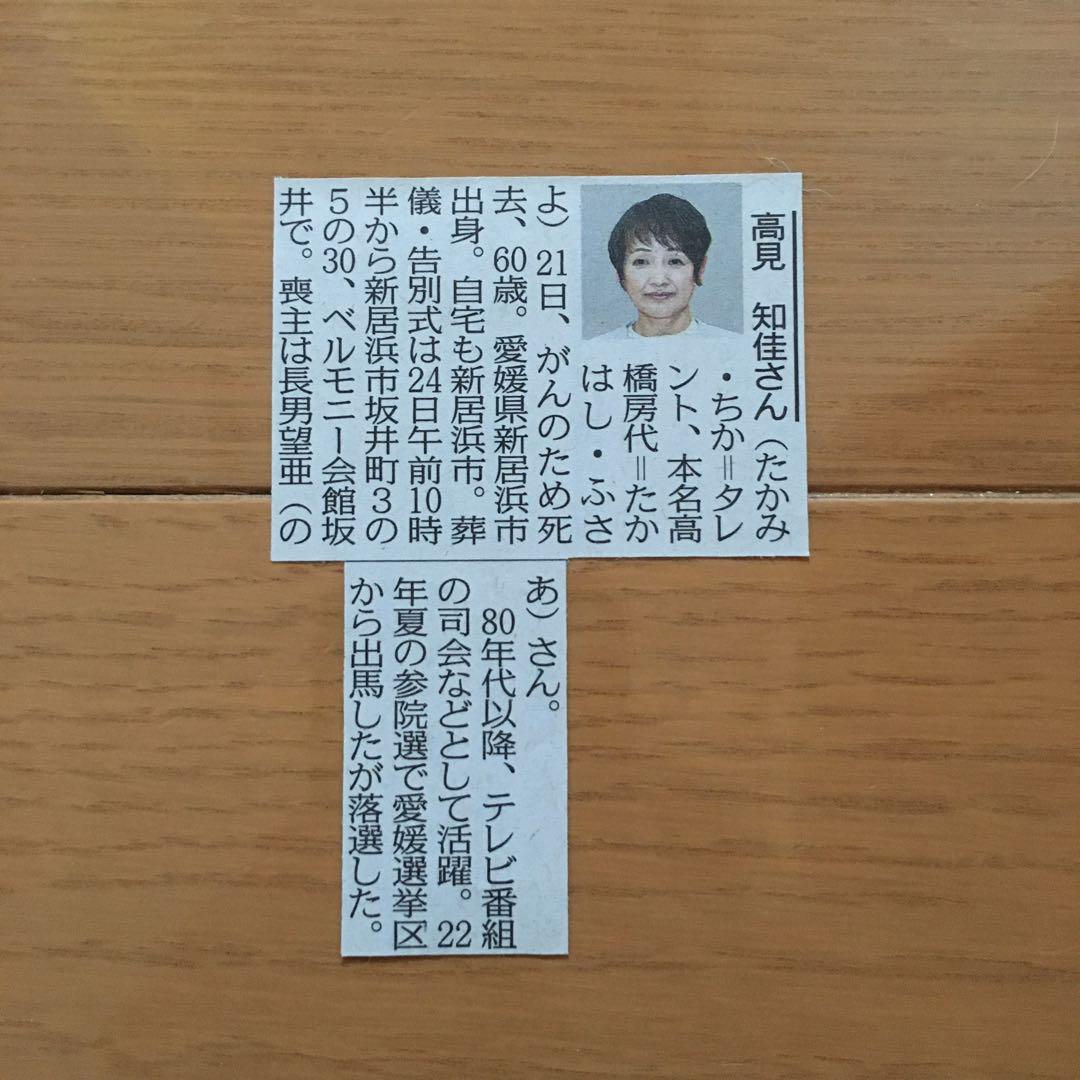 高見　知佳さん（たかみ
・ちか＝タレ
ント、本名高
橋房代＝たか
はし・ふさ
よ）21日、がんのため死
去、60歳。愛媛県新居浜市
出身。自宅も新居浜市。葬
儀・告別式は24日午前10時
半から新居浜市坂井町３の
５の30、ベルモニー会館坂
井で。喪主は長男望亜（の
あ）さん。
　80年代以降、テレビ番組
の司会などとして活躍。22
年夏の参院選で愛媛選挙区
から出馬したが落選した。